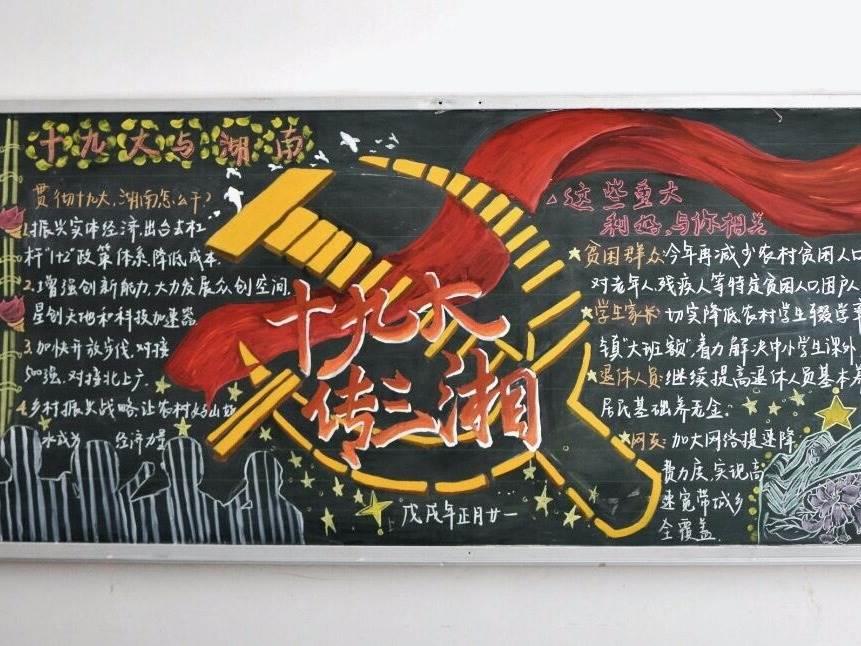 十九大与湖南
贯彻十九大,湖南怎么干?
1.振兴实体经济,出台去杠
杆"1+2"政策体系,降低成本.
2.增强创新能力,大力发展众创空间.
星创天地和科技加速器
3.加快开放步伐,对接
500强.对接北上广.
4.乡村振兴战略让农村
经济力量
十九大
传三湘
戊戌年正月廿一
这些重大
利好,与你相关
贫困群众:今年再减少农村贫困人口
对老年人.残疾人等特定贫困人口.因户
学生家长:切实降低农村学生辍学率
镇"大班额".着力解决中小学生课外
退休人员:继续提高退休人员基本养
居民基础养老金.
网友:加大网络提速降
费力度,实现高
速宽带城乡
全覆盖.